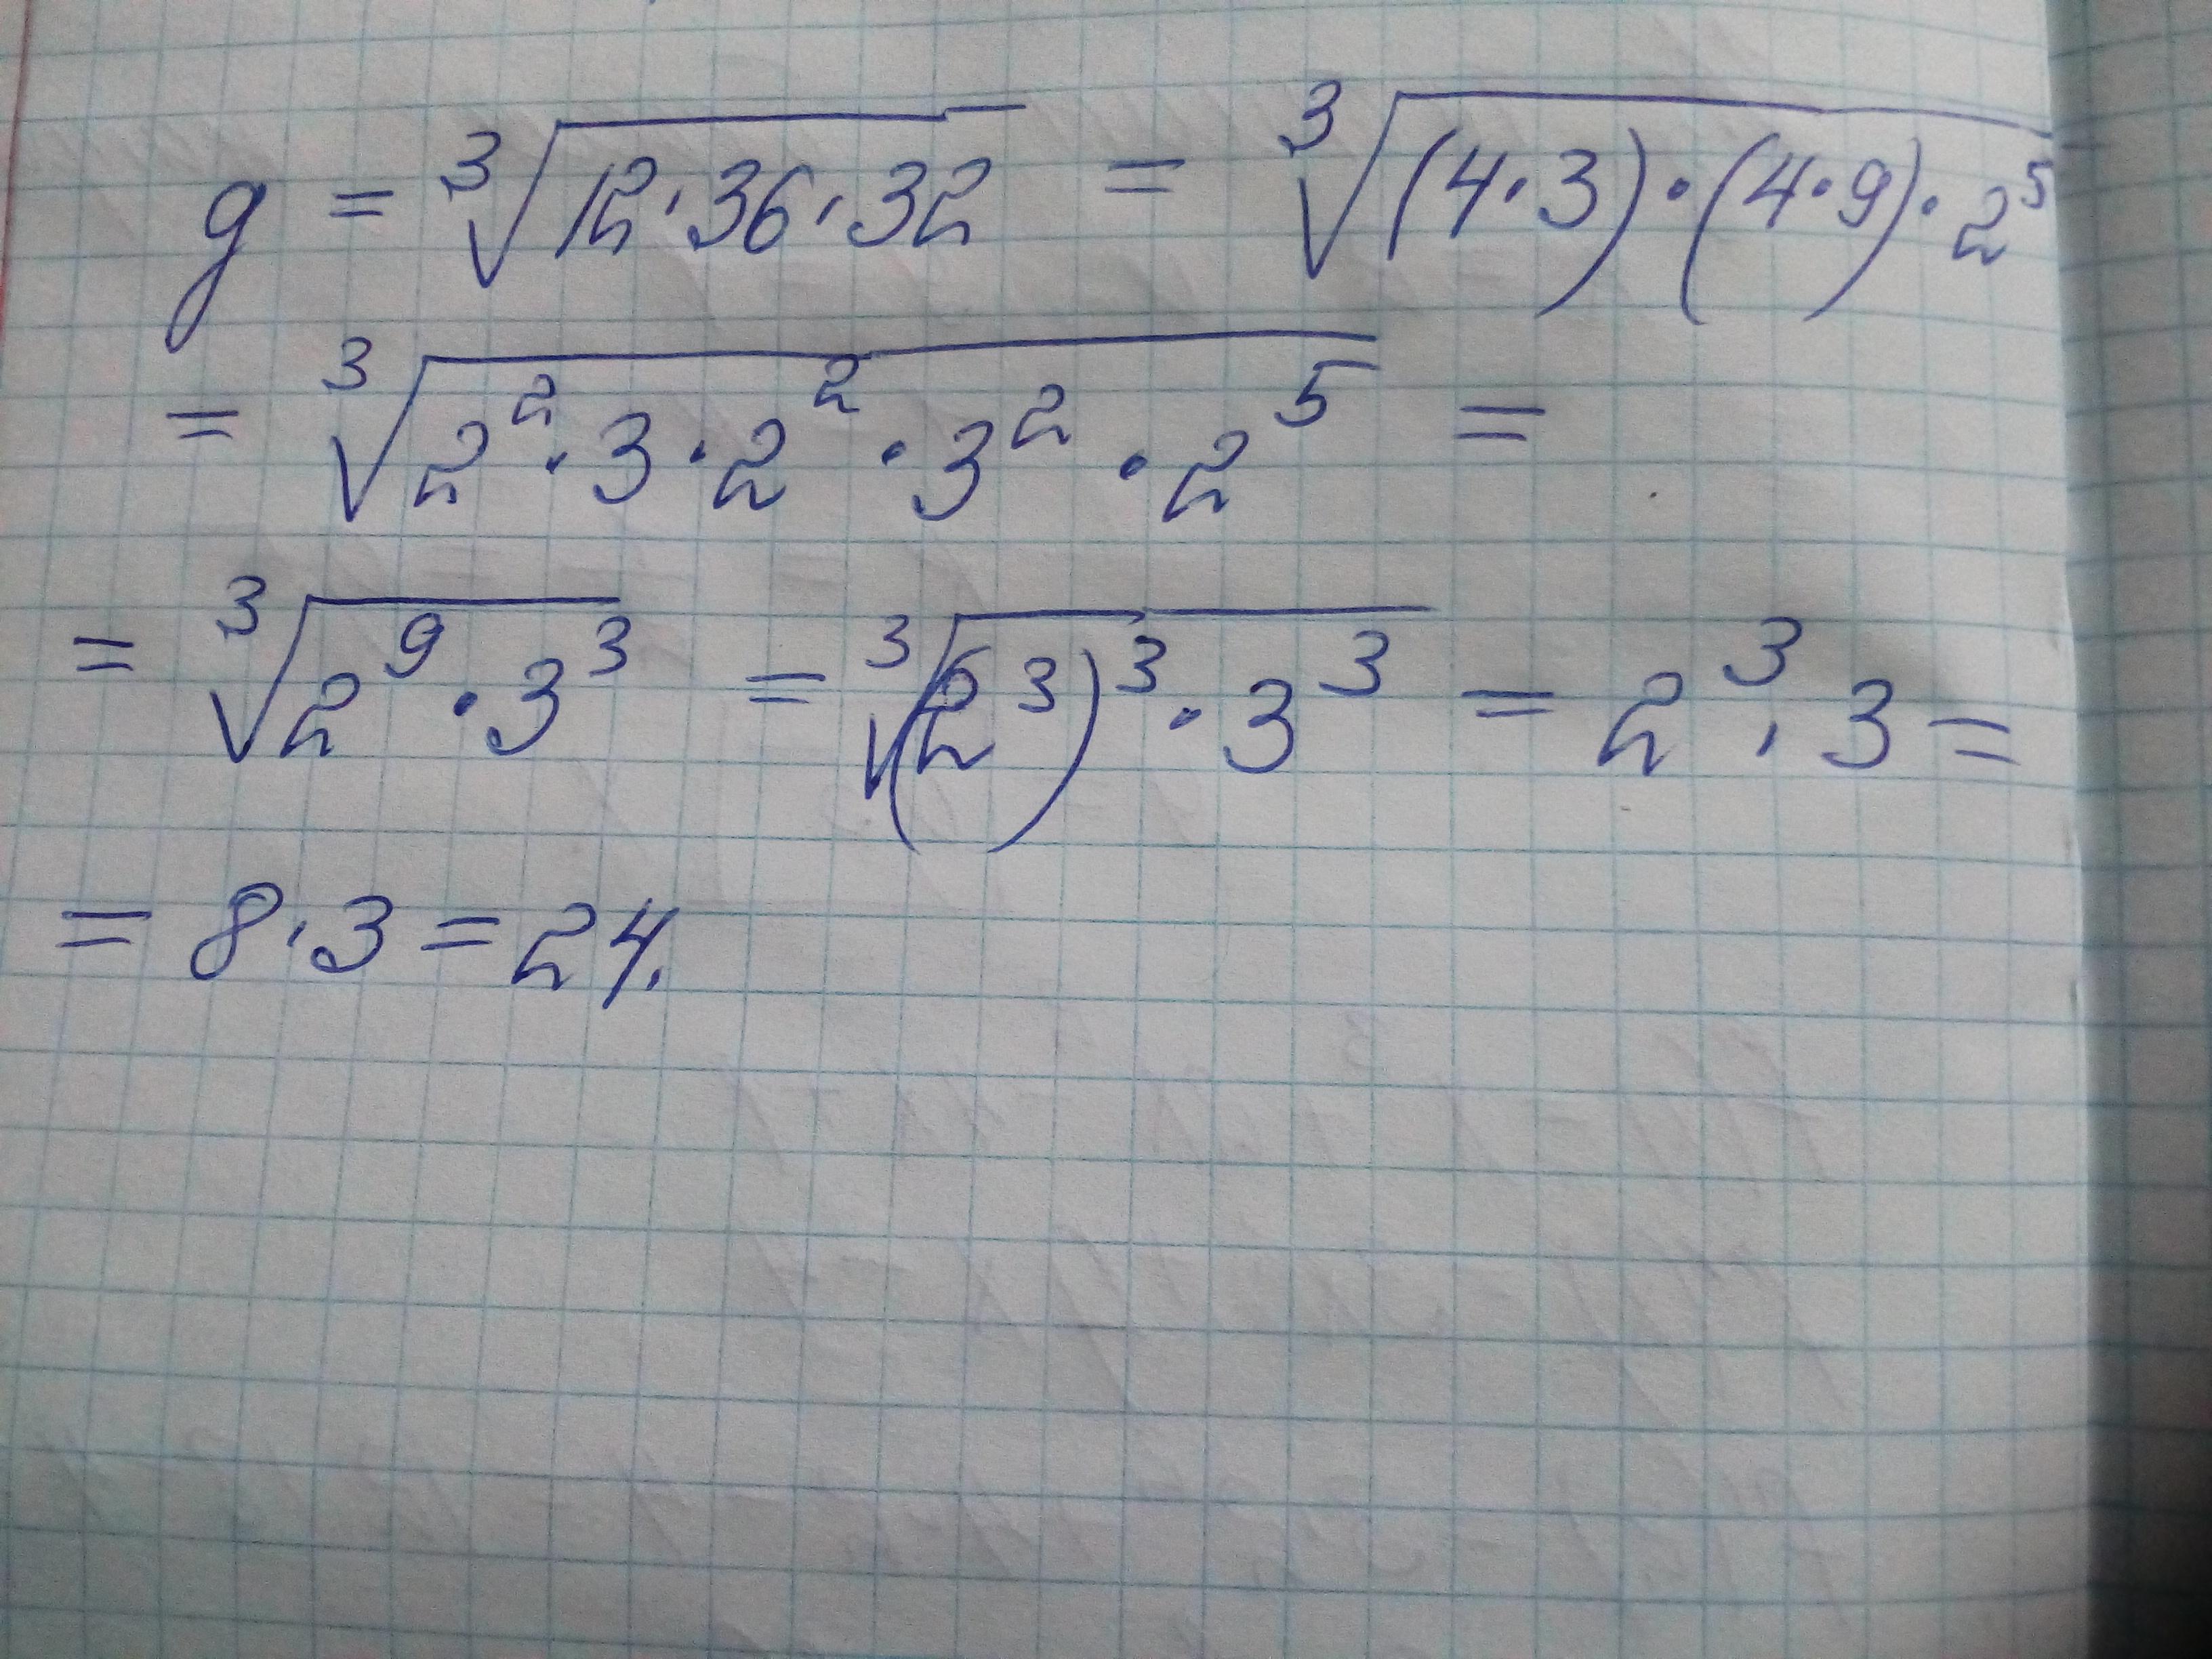 g = ∛(12·36·32) = ∛((4·3)·(4·9)·2⁵)
= ∛(2²·3·2²·3²·2⁵) =
= ∛(2⁹·3³) = ∛((2³)³·3³) = 2³·3 =
= 8·3 = 24.